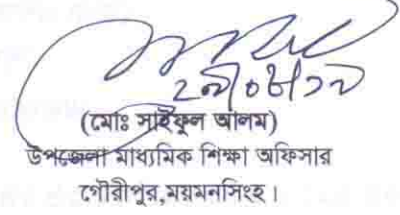 (মোঃ সাইফুল আলম)
উপজেলা মাধ্যমিক শিক্ষা অফিসার
গৌরীপুর,ময়মনসিংহ।